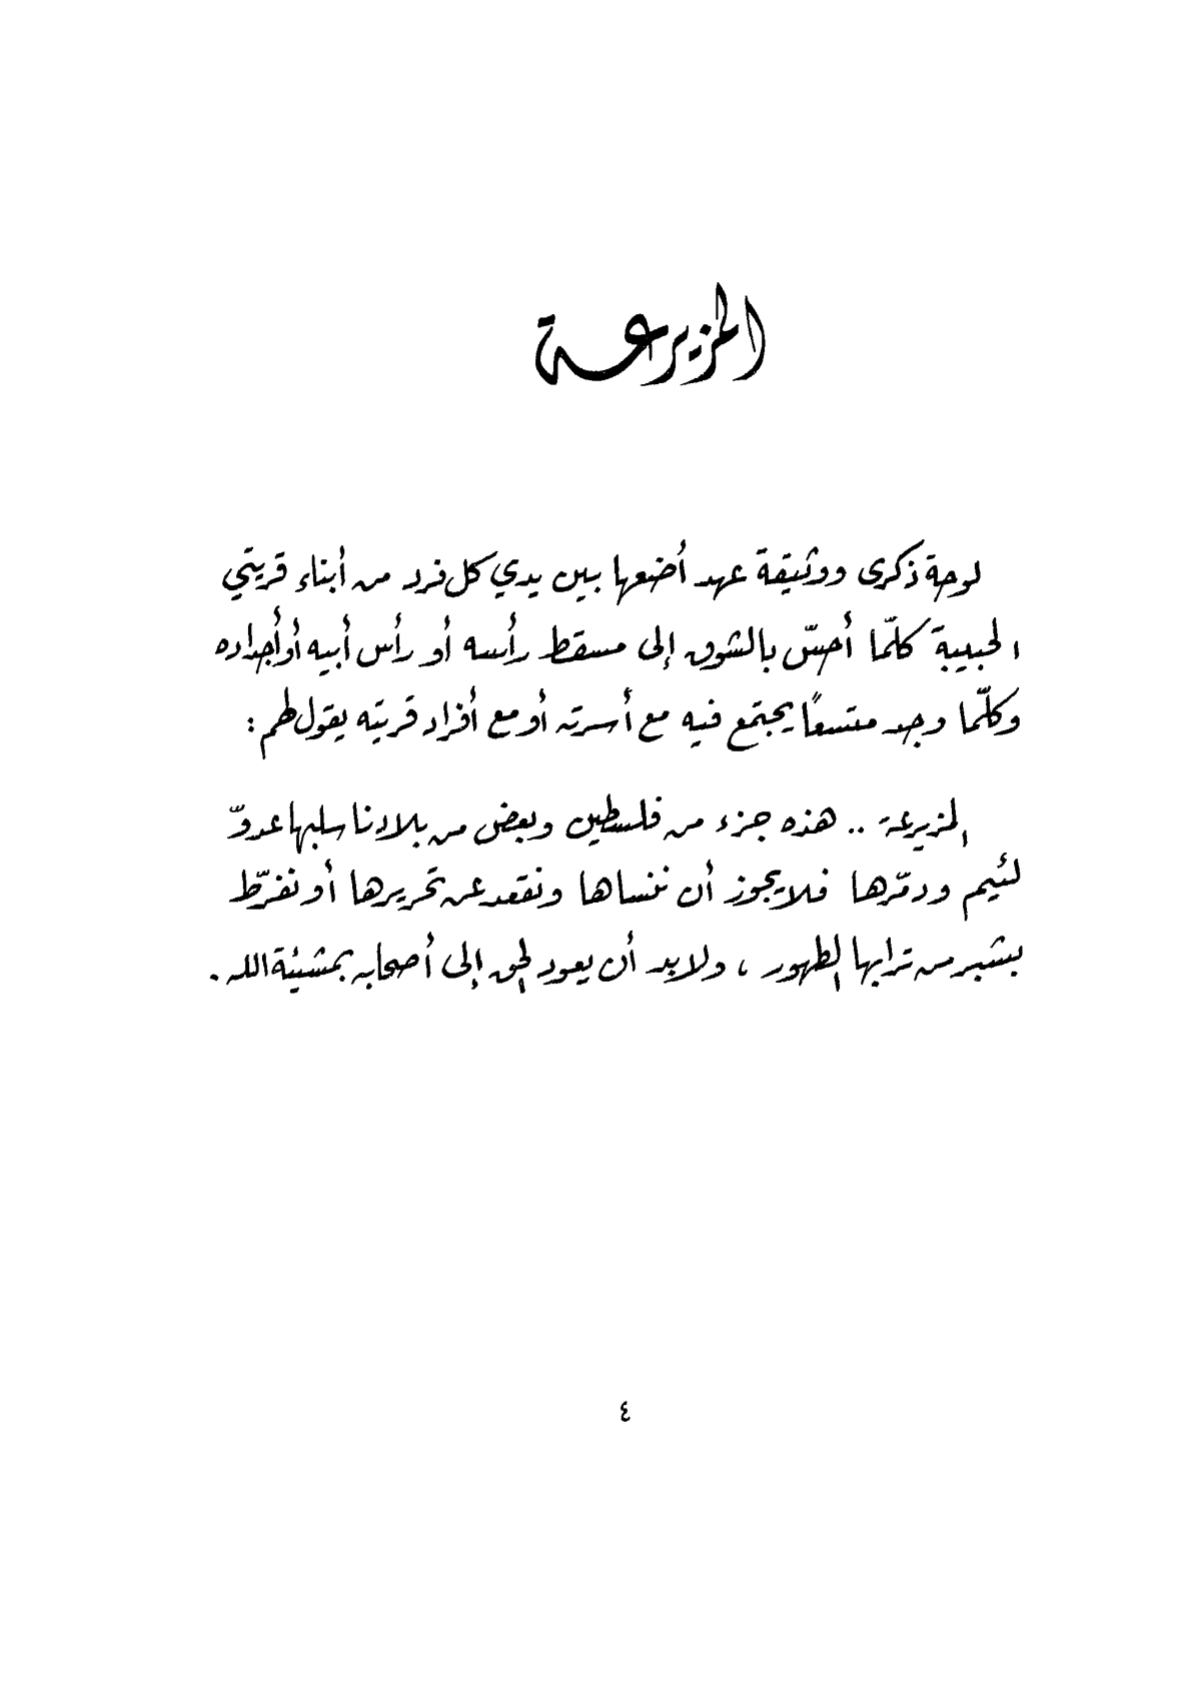 المزيرعة
لوحة ذكرى ووثيقة عهد أضعها بين يدي كل فرد من أبناء قريتي
الحبيبة كلّما أحسّ بالشوق إلى مسقط رأسه أو رأس أبيه أو أجداده
وكلّما وجد متسعًا يجتمع فيه مع أسرته أو مع أفراد قريته يقول لهم :
المزيرعة .. هذه جزء من فلسطين وبعض من بلادنا سلبها عدوّ
لئيم ودمّرها فلا يجوز أن ننساها ونقعد عن تحريرها أو نفرّط
بشبر من ترابها الطهور ، ولابد أن يعود الحق إلى أصحابه بمشيئة الله .
٤